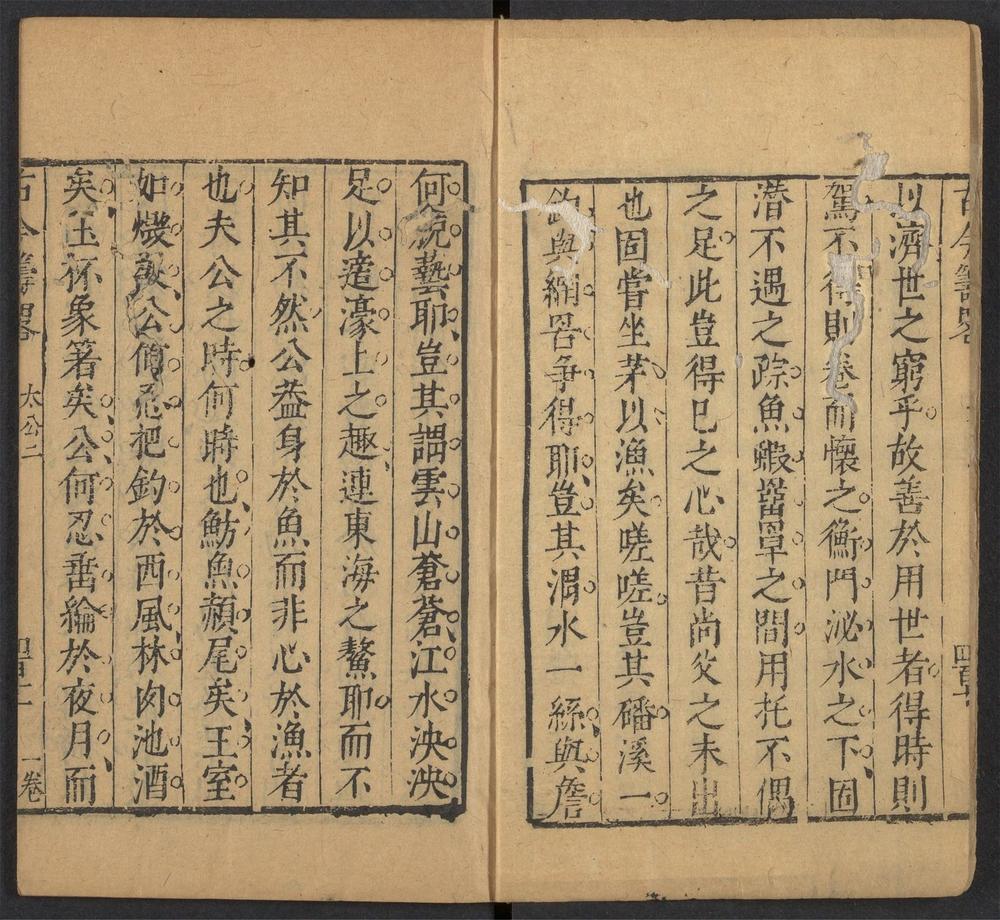 以濟世之窮乎故善於用世者得時則
駕不得則卷而懷之衡門泌水之下固
潛不遇之踪魚蝦罾罩之間用托不偶
之足此豈得已之心哉昔尚父之未出
也固嘗坐茅以漁矣嗟嗟豈其磻溪一
釣與網罟爭得耶豈其渭水一絲與詹
何競藝耶豈其謂雲山蒼蒼江水泱泱
足以遣濠上之趣連東海之鰲耶而不
知其不然公葢身於魚而非心於漁者
也夫公之時何時也魴魚赬尾矣王室
如燬哉公何忍把釣於西風林肉池酒
矣玉杯象箸矣公何忍垂綸於夜月而
太公二
一卷